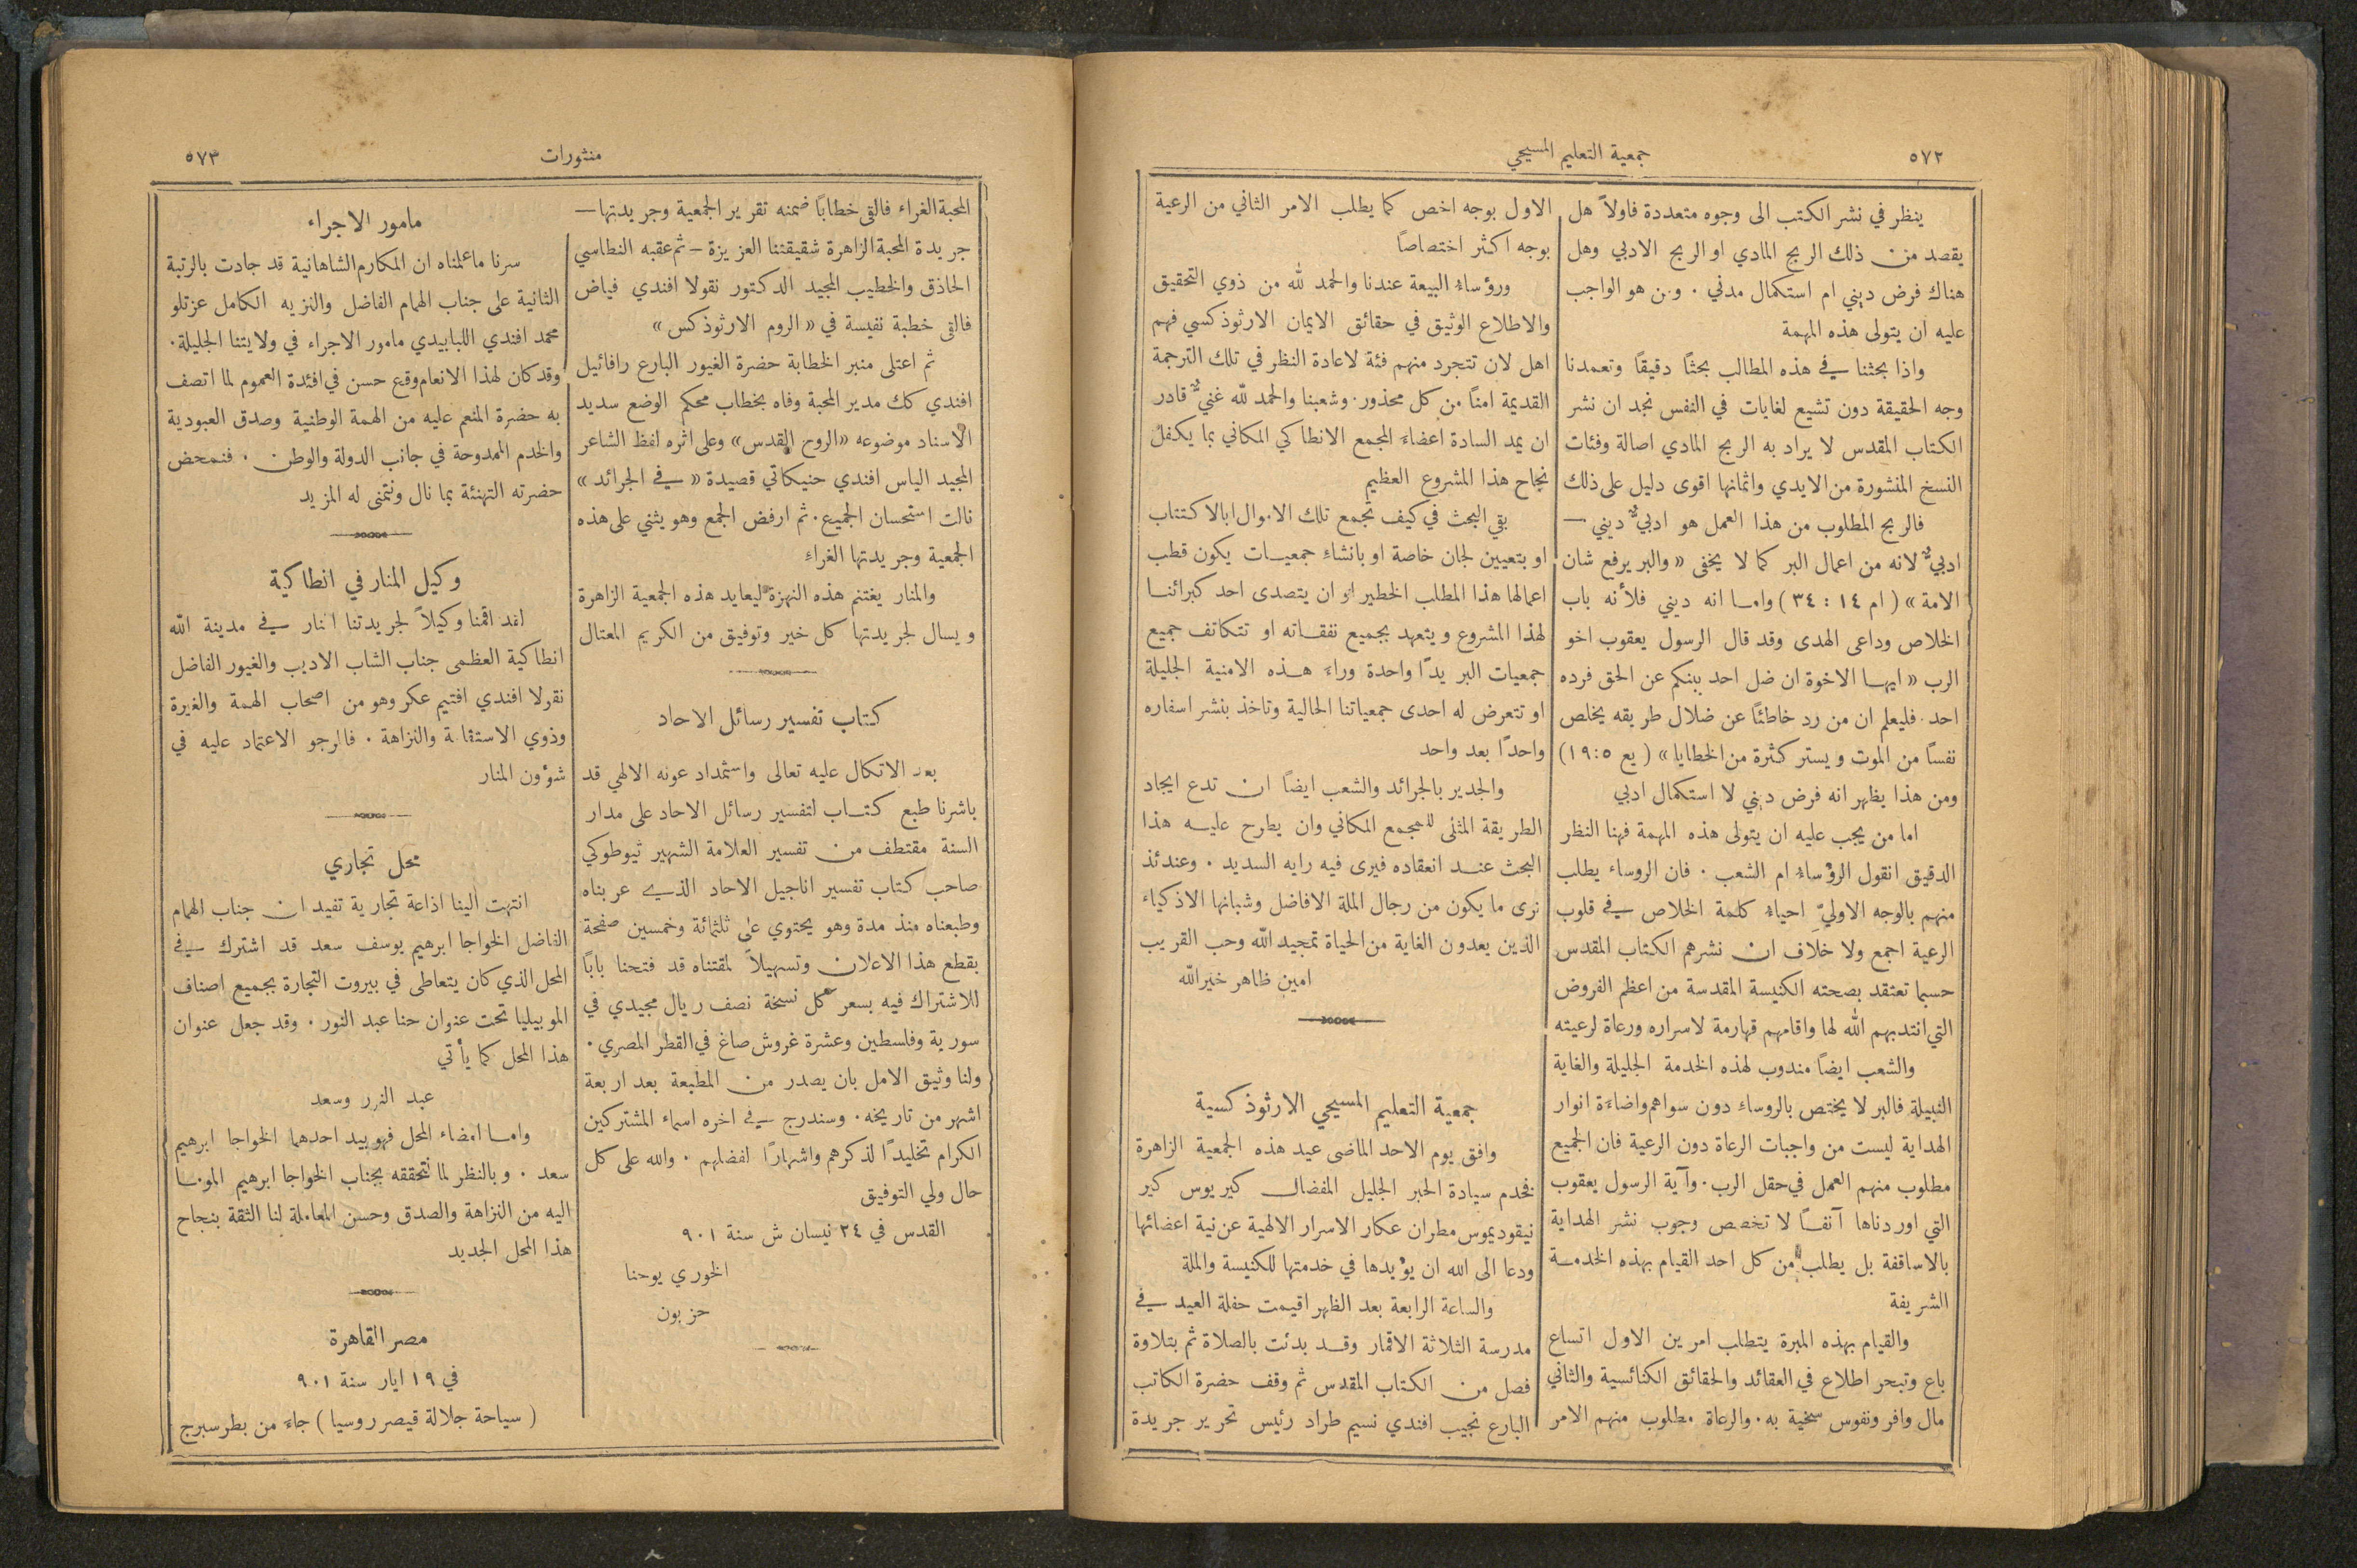 ٥٧٢
جمعية التعليم المسيحي
ينظر في نشر الكتب الى وجوه متعددة فاولاً هل
يقصد من ذلك الربح المادي او الربح الادبي وهل
هناك فرض ديني ام استكمال مدني . ومن هو الواجب
عليه ان يتولى هذه المهمة
واذا بحثنا في هذه المطالب بحثًا دقيقًا وتعمدنا
وجه الحقيقة دون تشيع لغايات في النفس نجد ان نشر
الكتاب المقدس لا يراد به الربح المادي اصالة وفئات
النسخ المنشورة من الايدي واثمانها اقوى دليل على ذلك
فالربح المطلوب من هذا العمل هو ادبيٌّ ديني —
ادبيٌّ لانه من اعمال البر كما لا يخفى « والبر يرفع شان
الامة » ( ام ١٤ : ٣٤ ) واما انه ديني فلأنه باب
الخلاص وداعى الهدى وقد قال الرسول يعقوب اخو
الرب « ايها الاخوة ان ضل احد بينكم عن الحق فرده
احد . فليعلم ان من رد خاطئًا عن ضلال طريقه يخلص
نفسًا من الموت ويستر كثرة من الخطايا » ( يع ١٩:٥ )
ومن هذا يظهر انه فرض ديني لا استكمال ادبي
اما من يجب عليه ان يتولى هذه المهمة فهنا النظر
الدقيق انقول الرؤساءُ ام الشعب . فان الروساء يطلب
منهم بالوجه الاوليّ احياءُ كلمة الخلاص في قلوب
الرعية اجمع ولا خلاف ان نشرهم الكتاب المقدس
حسبما تعتقد بصحته الكنيسة المقدسة من اعظم الفروض
التي انتدبهم الله لها واقامهم قهارمة لاسراره ورعاة لرعيته
والشعب ايضًا مندوب لهذه الخدمة الجليلة والغاية
النبيلة فالبر لا يختص بالروساء دون سواهم واضاءة انوار
الهداية ليست من واجبات الرعاة دون الرعية فان الجميع
مطلوب منهم العمل في حقل الرب . وآية الرسول يعقوب
التي اوردناها آنفًا لا تخصص وجوب نشر الهداية
بالاساقفة بل يطلب من كل احد القيام بهذه الخدمة
الشريفة
والقيام بهذه المبرة يتطلب امرين الاول اتساع
باع وتبحر اطلاع في العقائد والحقائق الكنائسية والثاني
مال وافر ونفوس سخية به . والرعاة مطلوب منهم الامر
الاول بوجه اخص كما يطلب الامر الثاني من الرعية
بوجه اكثر اختصاصًا
ورؤساءُ البيعة عندنا والحمد لله من ذوي التحقيق
والاطلاع الوثيق في حقائق الايمان الارثوذكسي فهم
اهل لان تتجرد منهم فئة لاعادة النظر في تلك الترجمة
القديمة امنًا من كل محذور . وشعبنا والحمد لله غنيٌّ قادر
ان يمد السادة اعضاءَ المجمع الانطاكي المكاني بما يكفل
نجاح هذا المشروع العظيم
بقي البحث في كيف تجمع تلك الاموال ابالاكتتاب
او بتعيين لجان خاصة او بانشاءِ جمعيات يكون قطب
اعمالها هذا المطلب الخطير او ان يتصدى احد كبرائنا
لهذا المشروع ويتعهد بجميع نفقاته او تتكاتف جميع
جمعيات البر يدًا واحدة وراءَ هذه الامنية الجليلة
او تتعرض له احدى جمعياتنا الحالية وتاخذ بنشر اسفاره
واحدًا بعد واحد
والجدير بالجرائد والشعب ايضًا ان تدع ايجاد
الطريقة المثلى للمجمع المكاني وان يطرح عليه هذا
البحث عند انعقاده فيرى فيه رايه السديد . وعندئذ
نرى ما يكون من رجال الملة الافاضل وشبانها الاذكياء
الذين يعدون الغاية من الحياة تمجيد الله وحب القريب
امين ظاهر خيرالله
جمعية التعليم المسيحي الارثوذكسية
وافق يوم الاحد الماضي عيد هذه الجمعية الزاهرة
فخدم سيادة الحبر الجليل المفضال كيريوس كير
نيقوديموس مطران عكار الاسرار الالهية عن نية اعضائها
ودعا الى الله ان يؤيدها في خدمتها للكنيسة والملة
والساعة الرابعة بعد الظهر اقيمت حفلة العيد في
مدرسة الثلاثة الاقمار وقد بدئت بالصلاة ثم بتلاوة
فصل من الكتاب المقدس ثم وقف حضرة الكاتب
البارع نجيب افندي نسيم طراد رئيس تحرير جريدة
منثورات
٥٧٣
المحبة الغراء فالقى خطابًا ضمنه تقرير الجمعية وجريدتها —
جريدة المحبة الزاهرة شقيقتنا العزيزة – ثم عقبه النطاسي
الحاذق والخطيب المجيد الدكتور نقولا افندي فياض
فالقى خطبة نفيسة في « الروم الارثوذكس »
ثم اعتلى منبر الخطابة حضرة الغيور البارع رافائيل
افندي كك مدير المحبة وفاه بخطاب محكم الوضع سديد
الاسناد موضوعه « الروح القدس » وعلى اثره لفظ الشاعر
المجيد الياس افندي حنيكاتي قصيدة « في الجرائد »
نالت استحسان الجميع . ثم ارفض الجمع وهو يثني على هذه
الجمعية وجريدتها الغراءِ
والمنار يغتنم هذه النهزة ليعايد هذه الجمعية الزاهرة
ويسال لجريدتها كل خير وتوفيق من الكريم المعتال
كتاب تفسير رسائل الاحاد
بعد الاتكال عليه تعالى واستمداد عونه الالهي قد
باشرنا طبع كتاب لتفسير رسائل الاحاد على مدار
السنة مقتطف من تفسير العلامة الشهير ثيوطوكي
صاحب كتاب تفسير اناجيل الاحاد الذي عربناه
وطبعناه منذ مدة وهو يحتوي على ثلثمائة وخمسين صفحة
بقطع هذا الاعلان وتسهيلاً لمقتناه قد فتحنا بابًا
للاشتراك فيه بسعر كل نسخة نصف ريال مجيدي في
سورية وفلسطين وعشرة غروش صاغ في القطر المصري .
ولنا وثيق الامل بان يصدر من المطبعة بعد اربعة
اشهر من تاريخه . وسندرج في اخره اسماء المشتركين
الكرام تخليدًا لذكرهم واشهارًا لفضلهم . والله على كل
حال ولي التوفيق
القدس في ٢٤ نيسان ش سنة ٩٠١
الخوري يوحنا
حزبون
مامور الاجراء
سرنا ما علمناه ان المكارم الشاهانية قد جادت بالرتبة
الثانية على جناب الهمام الفاضل والنزيه الكامل عزتلو
محمد افندي اللبابيدي مامور الاجراء في ولايتنا الجليلة .
وقد كان لهذا الانعام وقع حسن في افئدة العموم لما اتصف
به حضرة المنعم عليه من الهمة الوطنية وصدق العبودية
والخدم الممدوحة في جانب الدولة والوطن . فنمحض
حضرته التهنئة بما نال ونتمنى له المزيد
وكيل المنار في انطاكية
لقد اقمنا وكيلاً لجريدتنا المنار في مدينة الله
انطاكية العظمى جناب الشاب الاديب والغيور الفاضل
نقولا افندي افتيم عكر وهو من اصحاب الهمة والغيرة
وذوي الاستقامة والنزاهة . فالرجو الاعتماد عليه في
شوؤن المنار
محل تجاري
انتهت الينا اذاعة تجارية تفيد ان جناب الهمام
الفاضل الخواجا ابرهيم يوسف سعد قد اشترك في
المحل الذي كان يتعاطى في بيروت التجارة بجميع اصناف
الموبيليا تحت عنوان حنا عبد النور . وقد جعل عنوان
هذا المحل كما يأتي
عبد النور وسعد
واما امضاء المحل فهو بيد احدهما الخواجا ابرهيم
سعد . وبالنظر لما نتحققه بجناب الخواجا ابرهيم الموما
اليه من النزاهة والصدق وحسن المعاملة لنا الثقة بنجاح
هذا المحل الجديد
مصر القاهرة
في ١٩ ايار سنة ٩٠١
( سياحة جلالة قيصر روسيا ) جاءَ من بطرسبرج